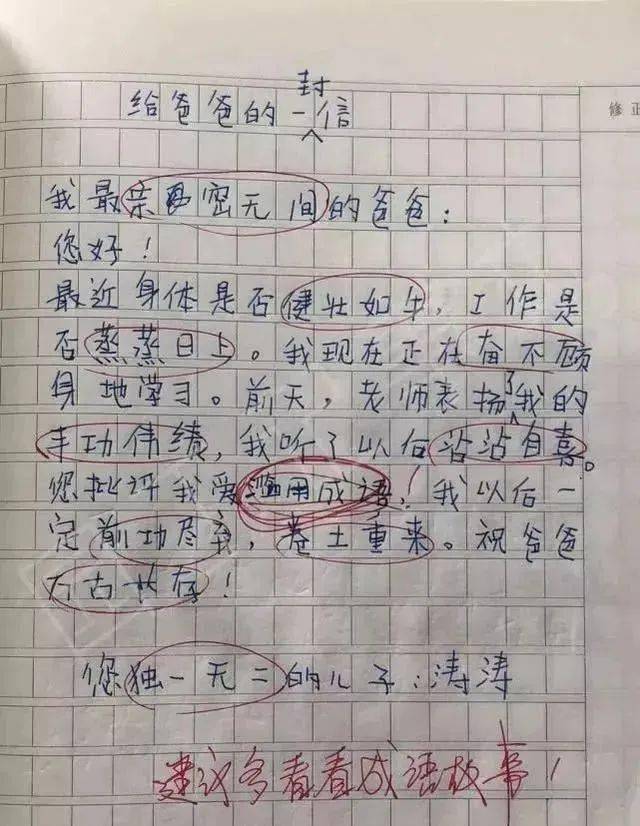 给爸爸的一封信
修正
我最亲密无间的爸爸：
您好！
最近身体是否健壮如牛，工作是
否蒸蒸日上。我现在正在奋不顾
身地学习。前天，老师表扬了我的
丰功伟绩，我听了以后沾沾自喜。
您批评我爱滥用成语！我以后一
定前功尽弃，卷土重来。祝爸爸
万古长存！
您独一无二的儿子：涛涛
建议多看看成语故事！